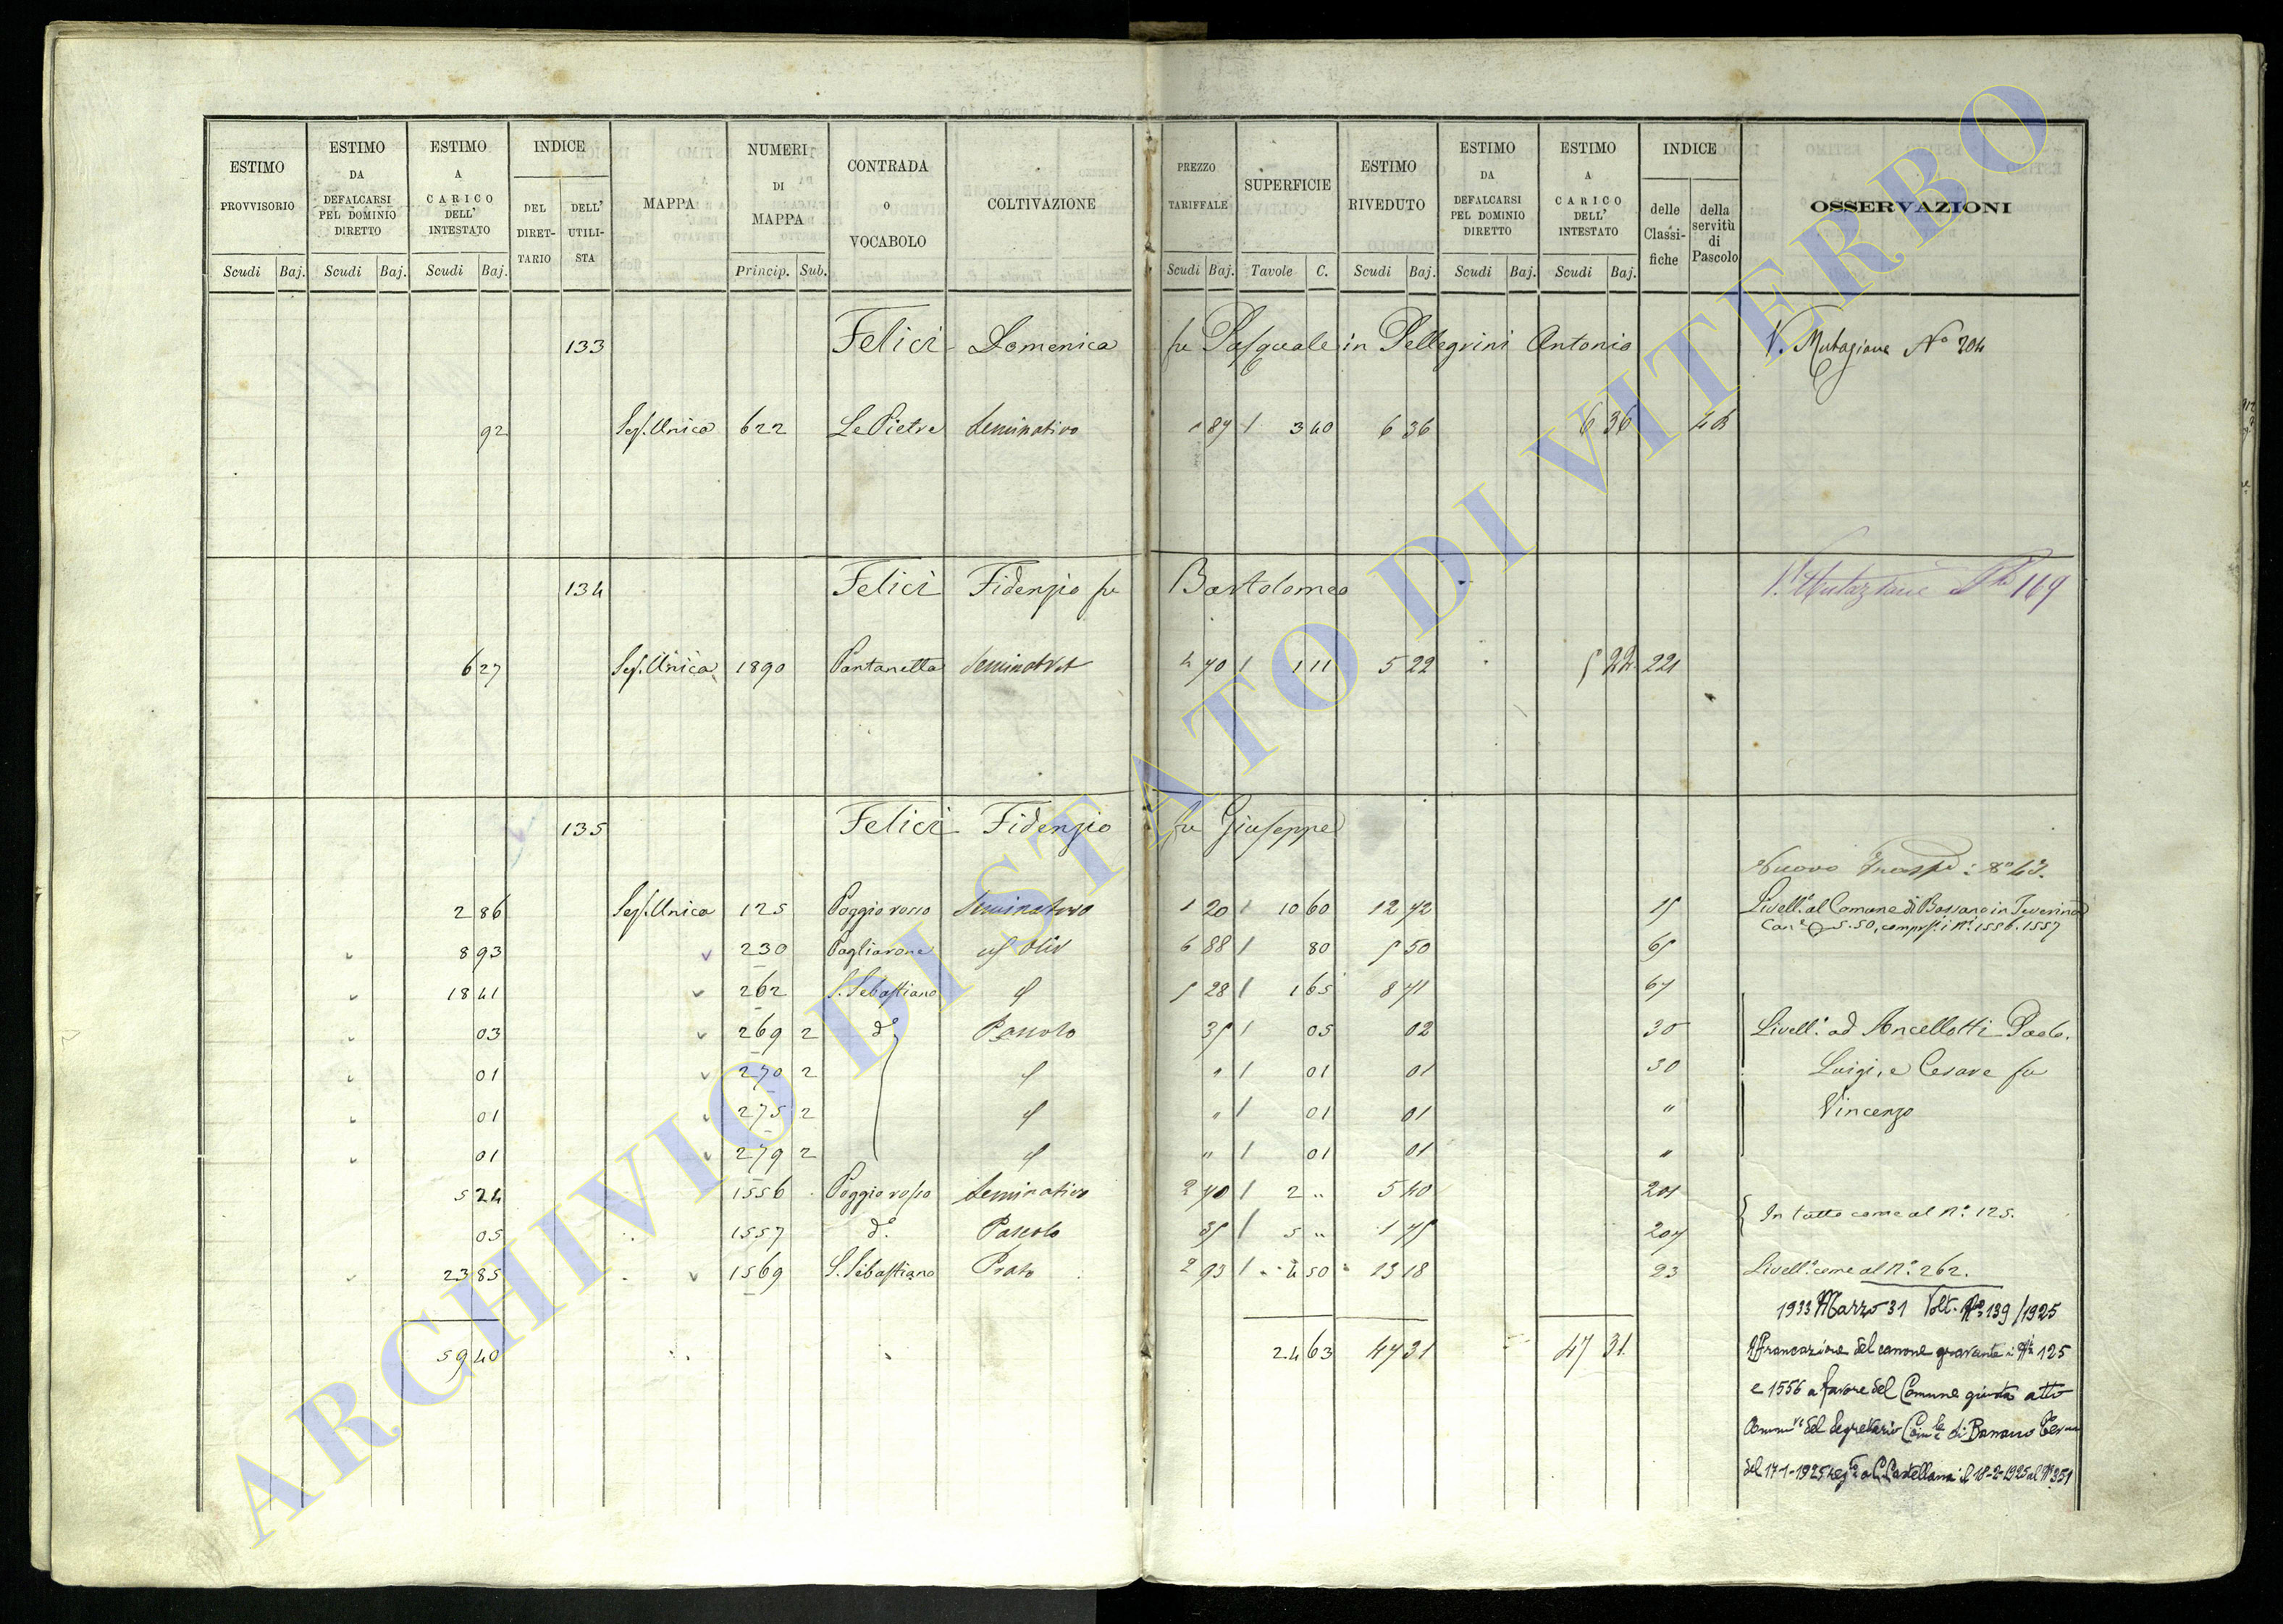 ESTIMO PROVVISORIO Scudi Baj.
ESTIMO DA DEFALCARSI PEL DOMINIO DIRETTO Scudi Baj.
ESTIMO A CARICO DELL' INTESTATO Scudi Baj.
INDICE DEL DIRET-TARIO DELL' UTILI-STA
MAPPA
NUMERI DI MAPPA Princip. Sub.
CONTRADA o VOCABOLO
COLTIVAZIONE
PREZZO TARIFFALE Scudi Baj.
SUPERFICIE Tavole C.
ESTIMO RIVEDUTO Scudi Baj.
ESTIMO DA DEFALCARSI PEL DOMINIO DIRETTO Scudi Baj.
ESTIMO A CARICO DELL' INTESTATO Scudi Baj.
INDICE delle Classi-fiche della servitù di Pascolo
OSSERVAZIONI
133 Felici Domenica fu Pasquale in Pellegrini Antonio V. Mutazione N° 204
92 Sez. Unica 622 Le Pietre Seminativo 1 87 / 3 40 6 36 6 36
134 Felici Fidenzio fu Bartolomeo V. Mutazione N° 169
6 27 Sez. Unica 1890 Pantanella Seminat Vit 4 70 / 1 11 5 22 5 22 221
135 Felici Fidenzio fu Giuseppe
Nuovo
2 86 Sez. Unica 125 Poggio rosso Seminativo 1 20 / 10 60 12 72 15 Livell.° al Comune di Bassano in Teverina
5.50, compr. i N.i 1556. 1557
8 93 230 Pagliarone Oliv 6 88 / 80 5 50 65
18 41 262 S. Sebastiano 5 28 / 1 65 8 71 67
03 269 2 d.° Pascolo 35 / 05 02 30 Livell.i ad Ancellotti Paolo,
01 270 2 " / 01 01 30 Luigi, e Cesare fu
01 275 2 " / 01 01 " Vincenzo
01 279 2 " / 01 01 "
5 24 1556 Poggio rosso Seminativo 2 70 / 2 " 5 40 201
05 1557 d.° Pascolo 35 / 5 " 1 75 207 In tutto come al N.° 125.
23 85 1569 S. Sebastiano Prato 2 93 / 4 50 13 18 23 Livell.° come al N.° 262.
1933 Marzo 31 Volt. N° 139/1925
59 40 24 63 47 31 47 31 Affrancazione del canone gravante i N.i 125
e 1556 a favore del Comune giusta atto
del Segretario di Bassano
del 17-1-1925 a C. Castellana il 18-2-1925 al N° 351
ARCHIVIO DI STATO DI VITERBO